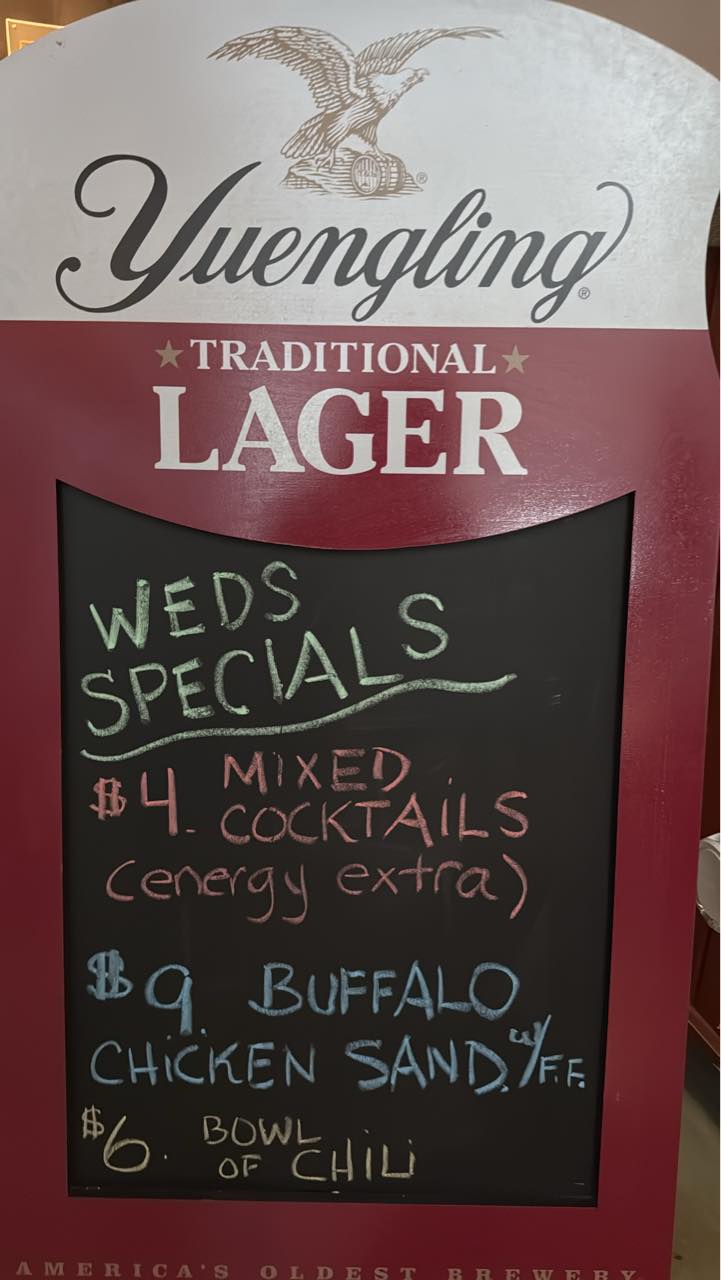 Yuengling®
TRADITIONAL
LAGER
WEDS
SPECIALS
$4. MIXED
COCKTAILS
(energy extra)
$9. BUFFALO
CHICKEN SAND. w/F.F.
$6. BOWL
OF CHILI
AMERICA'S OLDEST BREWERY